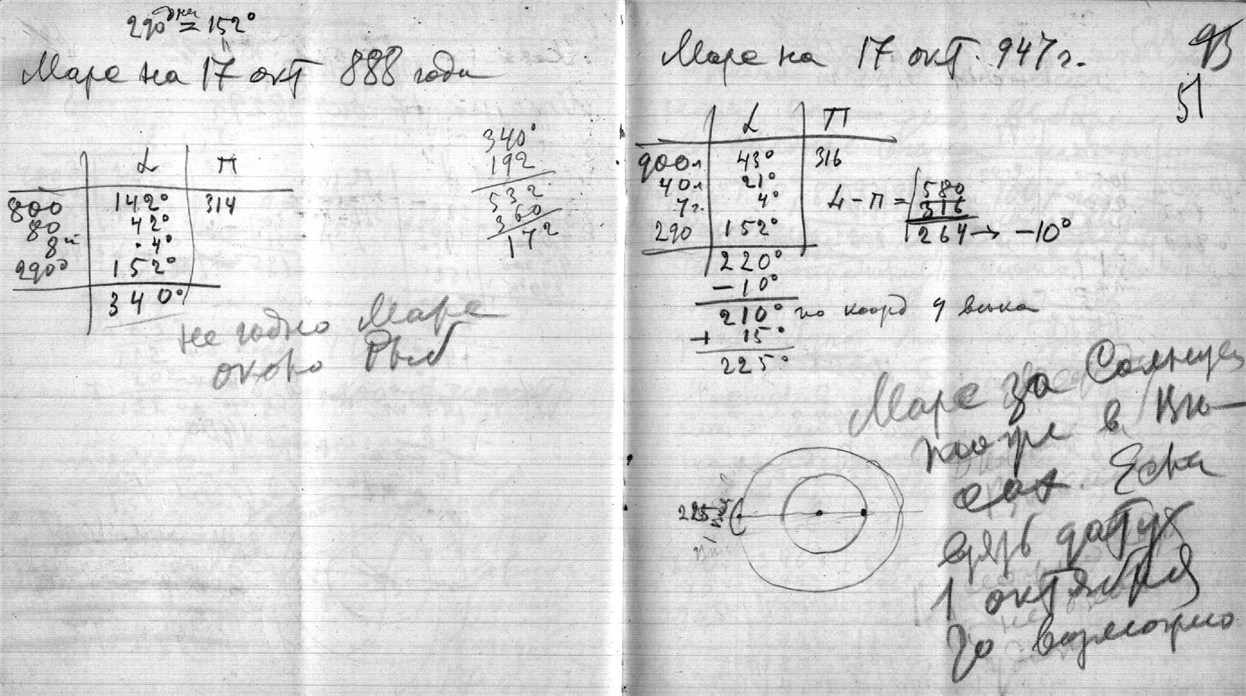 290 дни = 152°
Марс на 17 окт 888 года
L П
800 142° 314
80 42°
8й 4°
290д 152°
340°
340°
192
532
360
172
не годно Марс
около Рыб
93
51
Марс на 17 окт. 947 г.
L П
900л 43° 316
40л 21°
7г. 4°
290 152°
L - П = 580
316
264 → -10°
220°
-10°
210° по коорд 9 века
+ 15°
225°
225°
Марс за Солнцем
тоже в Вы-
сах Если
взять дату
1 октября
то возможно